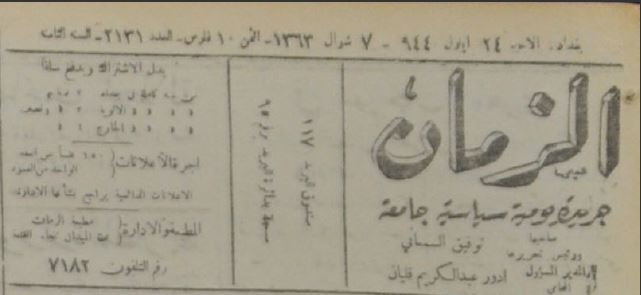 بغداد. الاحد ٢٤ ايلول ٩٤٤ - ٧ شوال ١٣٦٣ - الثمن ١٠ فلوس - العدد ٢١٣١ - السنة
الزمان
جريدة يومية سياسية جامعة
صاحبها
ورئيس تحريرها
توفيق السمعاني
المدير المسؤول
المحامي
ادور عبدالكريم قليان
صندوق البريد ١١٧
مسجلة بدائرة البريد برقم ٦٥
بدل الاشتراك ويدفع سلفاً
اجرة الاعلانات
الاعلانات الدائمية يراجع بشأنها الادارة
المطبعة والادارة
مطبعة الزمان
رقم التلفون ٧١٨٢